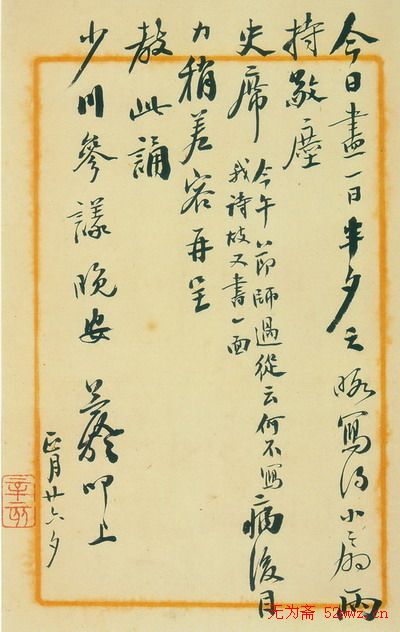 今日一日半夕之寫得小扇兩
持敬塵
史席 今午節師過從云何不寫
我詩故又書一面
病後目
力稍差容再呈
教此誦
少川參議晚安 叩上
正月廿六夕
无为斋 52wwz.cn